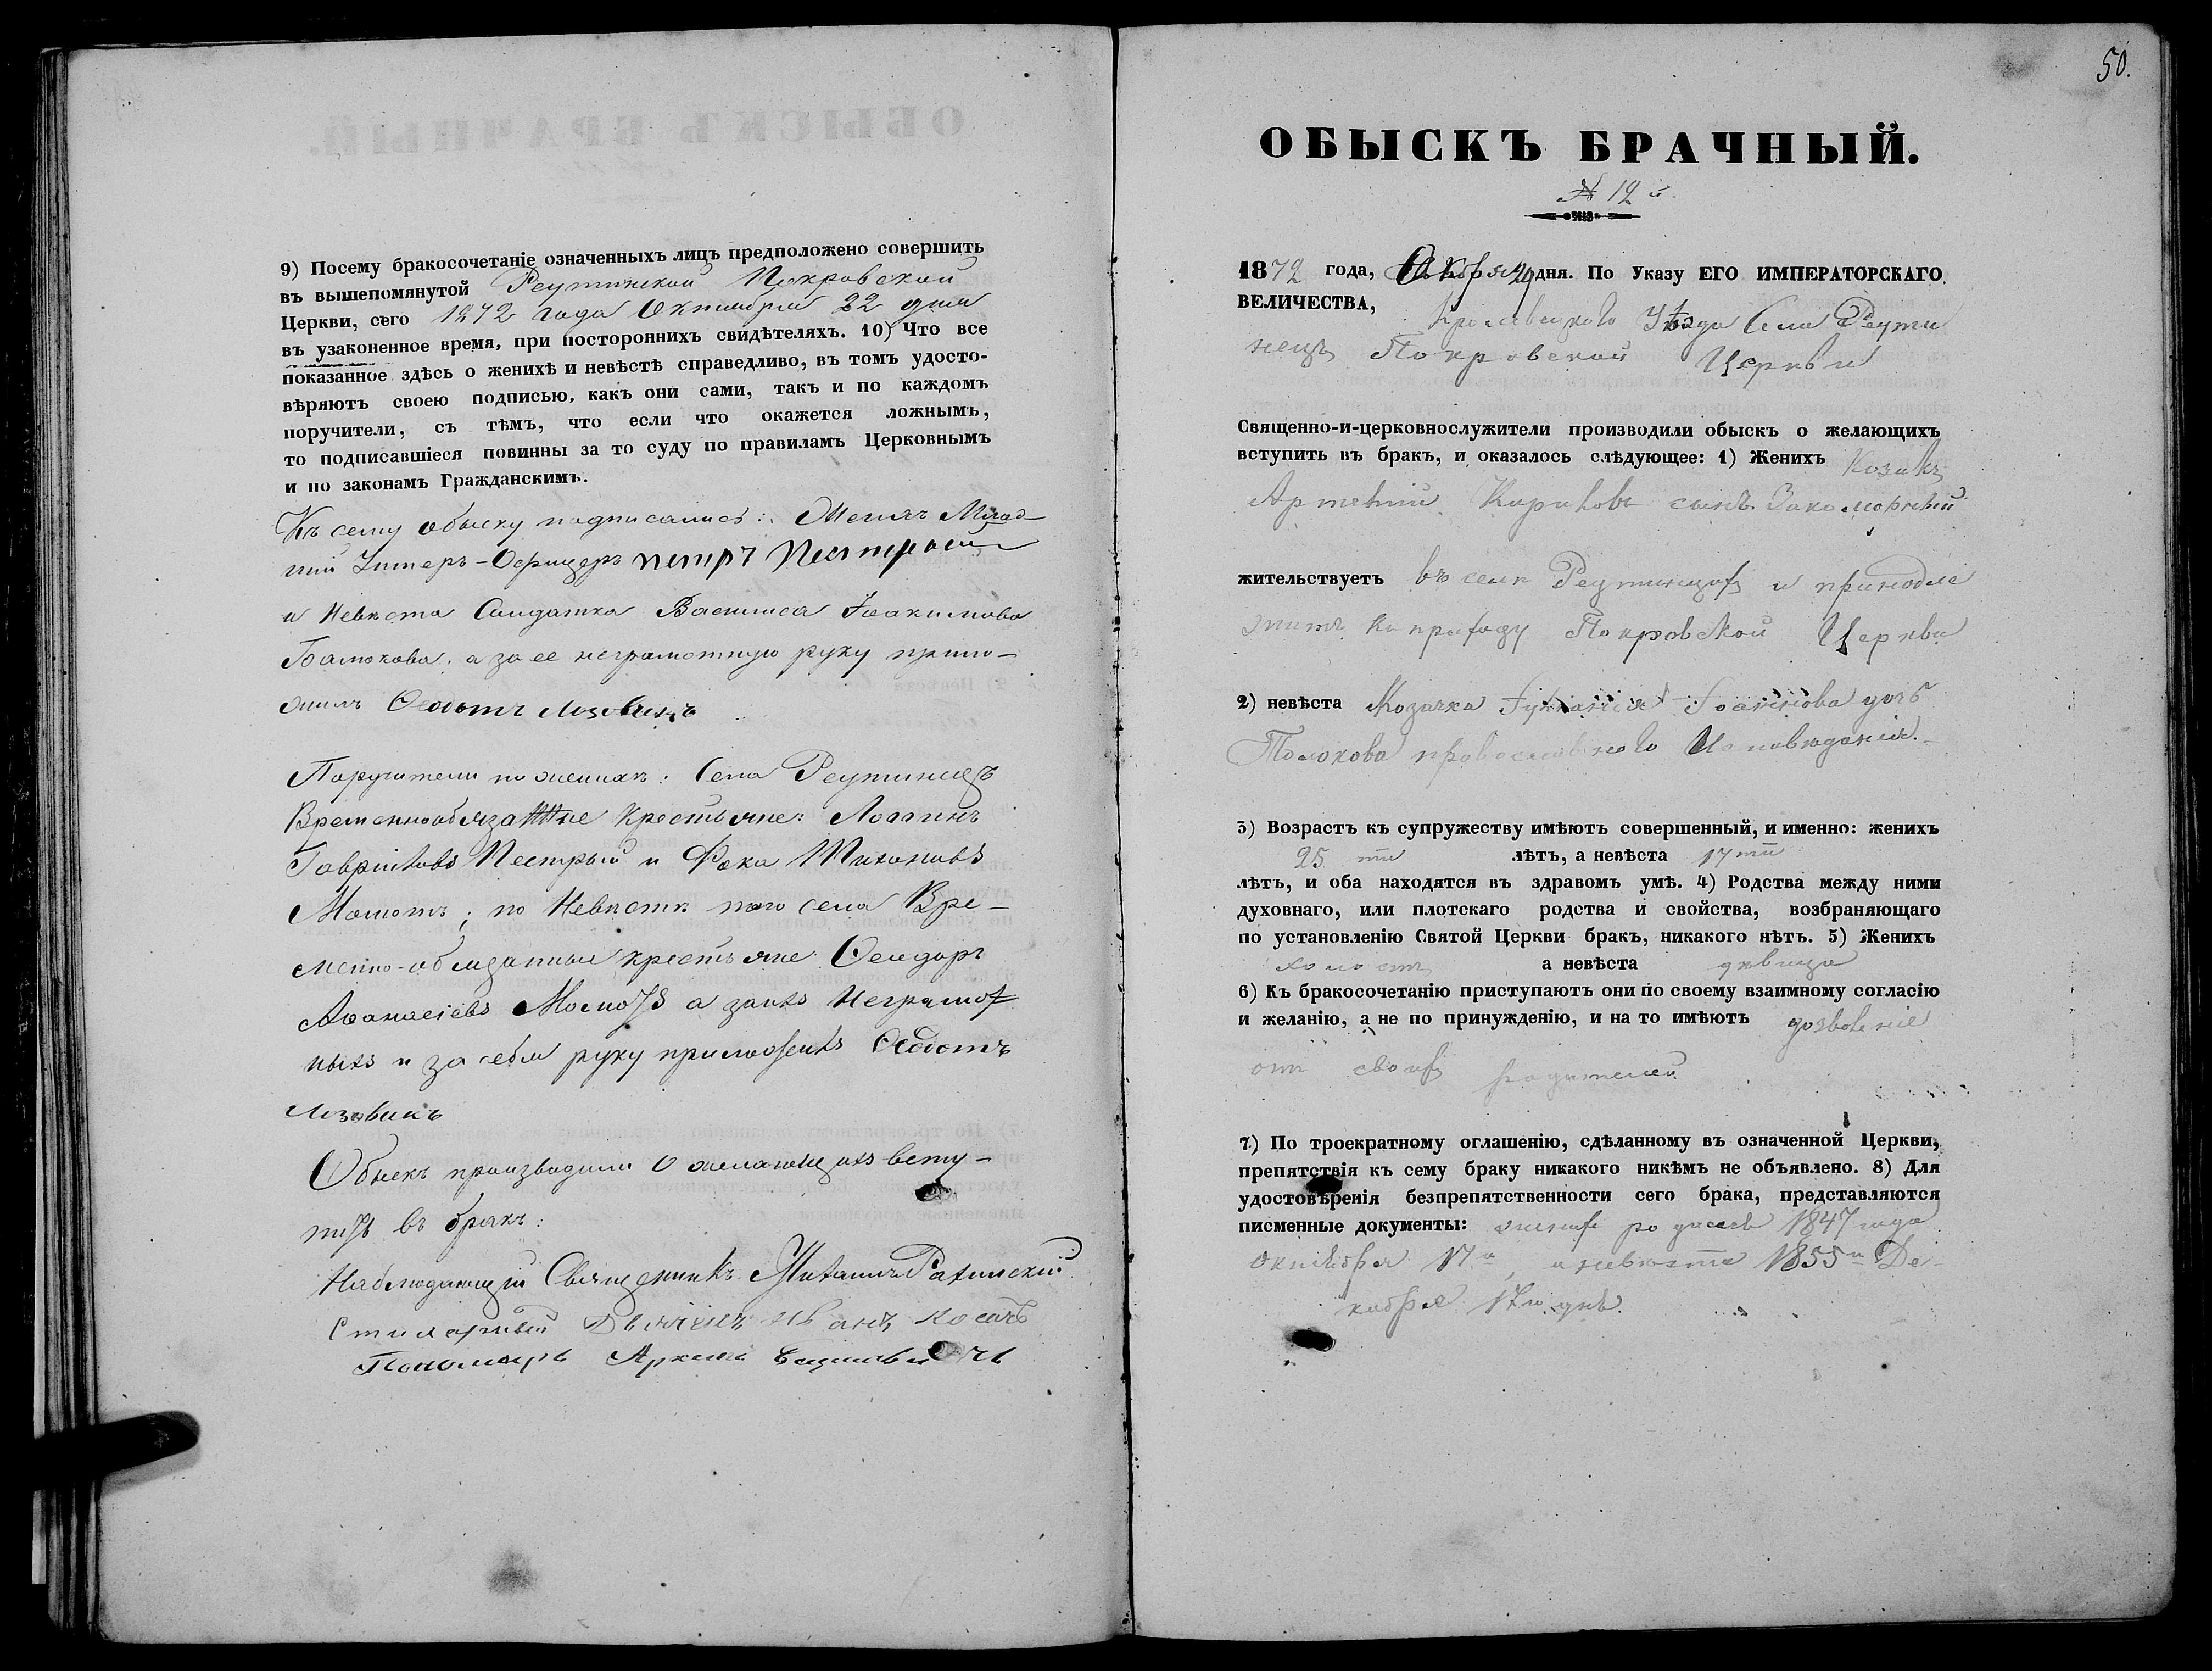 9) Посему бракосочетаніе означенныхъ лицъ предположено совершить
въ вышепомянутой Реутинской Покровской
Церкви, сего 1872 года Октября 22 дня
въ узаконенное время, при постороннихъ свидѣтеляхъ. 10) Что все
показанное здѣсь о женихѣ и невѣстѣ справедливо, въ томъ удосто-
вѣряютъ своею подписью, какъ они сами, такъ и по каждомъ
поручители, съ тѣмъ, что если что окажется ложнымъ,
то подписавшіеся повинны за то суду по правиламъ Церковнымъ
и по законамъ Гражданскимъ.
Къ сему обыску подписались: Женихъ Млад-
шій Унтеръ-Офицеръ Петръ Пестрый
и Невѣста Солдатка Василиса Іоакимова
а за ее неграмотную руку прило-
жилъ Ѳеодотъ Лозовикъ
Поручители по женихѣ: Села Реутинецъ
Временнообязанные Крестьяне: Логгинъ
Гавріиловъ Пестрый и Фока Тихоновъ
по Невѣстѣ того села Вре-
менно-обязанные крестьяне
Аѳанасіевъ а за ихъ Неграмот
ныхъ и за себя руку приложилъ Ѳеодотъ
Лозовикъ
Обыскъ производили о желающихъ всту-
пить въ бракъ:
Наблюдающій Священникъ
Дьячекъ Иванъ Косачъ
Пономарь
50.
ОБЫСКЪ БРАЧНЫЙ.
№ 12й
1872 года, Октября дня. По Указу ЕГО ИМПЕРАТОРСКАГО
ВЕЛИЧЕСТВА, Кролевецкого Уѣзда Села Реути
нецъ Покровской Церкви
Священно-и-церковнослужители производили обыскъ о желающихъ
вступить въ бракъ, и оказалось слѣдующее: 1) Женихъ Козакъ
Артемій Кириловъ сынъ
жительствуетъ въ селѣ Реутинцахъ и принадле
житъ къ приходу Покровской Церкви
2) невѣста Козачка Іоаннова дочь
православного Исповѣданія.
3) Возрастъ къ супружеству имѣютъ совершенный, и именно: женихъ
25 ти лѣтъ, а невѣста 17 ти
лѣтъ, и оба находятся въ здравомъ умѣ. 4) Родства между ними
духовнаго, или плотскаго родства и свойства, возбраняющаго
по установленію Святой Церкви бракъ, никакого нѣтъ. 5) Женихъ
холостъ а невѣста дѣвица
6) Къ бракосочетанію приступаютъ они по своему взаимному согласію
и желанію, а не по принужденію, и на то имѣютъ дозволеніе
отъ своихъ родителей
7) По троекратному оглашенію, сдѣланному въ означенной Церкви,
препятствія къ сему браку никакого никѣмъ не объявлено. 8) Для
удостовѣренія безпрепятственности сего брака, представляются
писменные документы: женихъ родился 1847 года
Октября 17го, а невѣста 1855го Де-
кабря 17го дня.